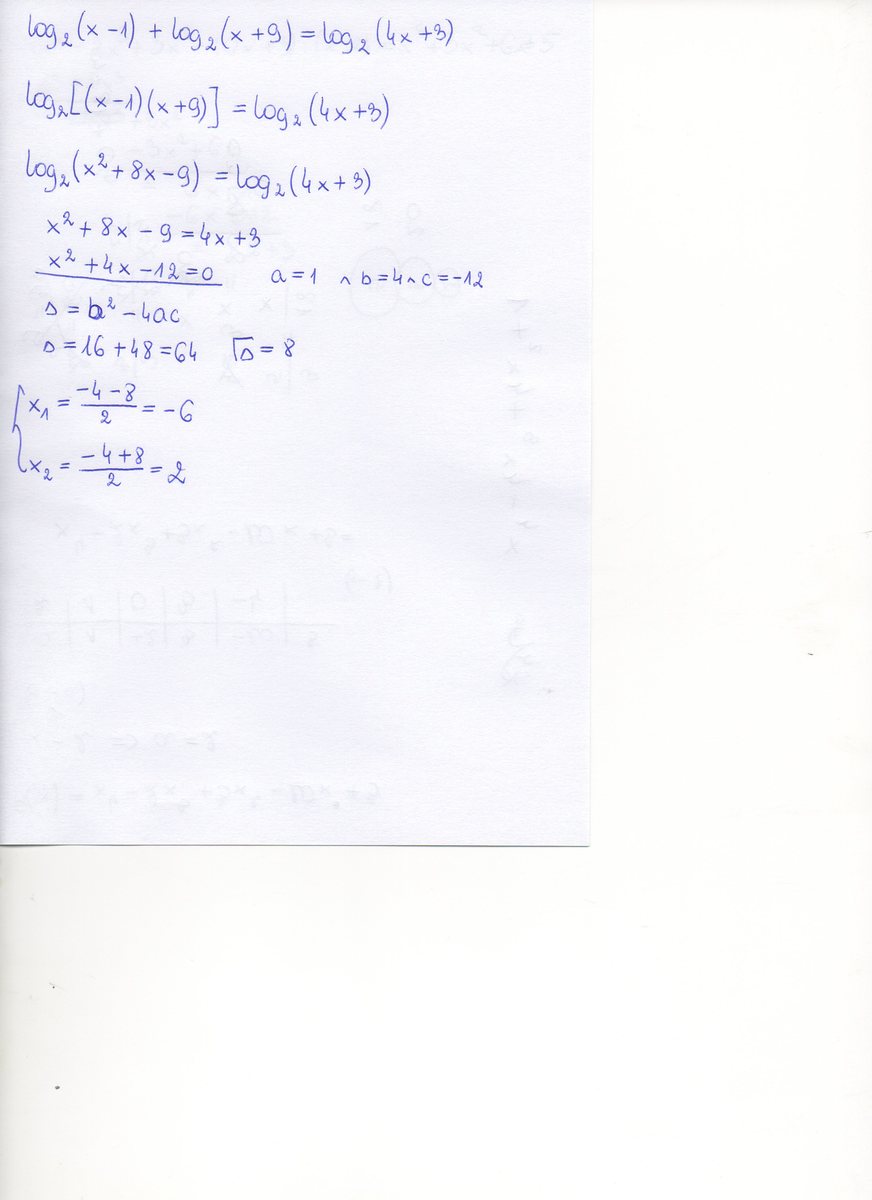 log₂(x-1) + log₂(x+9) = log₂(4x+3)
log₂[(x-1)(x+9)] = log₂(4x+3)
log₂(x²+8x-9) = log₂(4x+3)
x²+8x-9=4x+3
x²+4x-12=0 a=1 ∧ b=4 ∧ c=-12
Δ=b²-4ac
Δ=16+48=64 √Δ=8
{x₁=\frac{-4-8}{2}=-6
x₂=\frac{-4+8}{2}=2